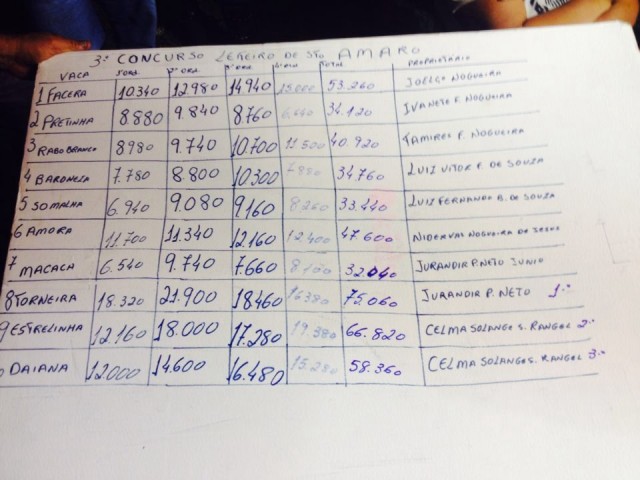 3º CONCURSO LEITEIRO DE STO AMARO
VACA 1º ORD. 2º ORD. 3º ORD. 4º ORD. TOTAL PROPRIETÁRIO
1 FACERA 10.340 12.980 14.940 15.000 53.260 JOELÇO NOGUEIRA
2 PRETINHA 8880 9.840 8760 6.640 34.120 IVANETE F. NOGUEIRA
3 RABO BRANCO 8980 9.740 10.700 11.500 40.920 TAMIRES F. NOGUEIRA
4 BARONEZA 7.780 8.800 10.300 7.880 34.760 LUIZ VITOR F. DE SOUZA
5 SOMALHA 6.940 9.080 9.160 8.260 33.440 LUIZ FERNANDO B. DE SOUZA
6 AMORA 11.700 11.340 12.160 12.400 47.600 NIDERVAL NOGUEIRA DE JESUS
7 MACACA 6.540 9.740 7.660 8.100 32.040 JURANDIR P. NETO JUNIO
8 TORNEIRA 18.320 21.900 18.460 16.380 75.060 JURANDIR P. NETO 1º
9 ESTRELINHA 12.160 18.000 17.280 19.380 66.820 CELMA SOLANGE S. RANGEL 2º
0 DAIANA 12.000 14.600 16.480 15.280 58.360 CELMA SOLANGE S. RANGEL 3º